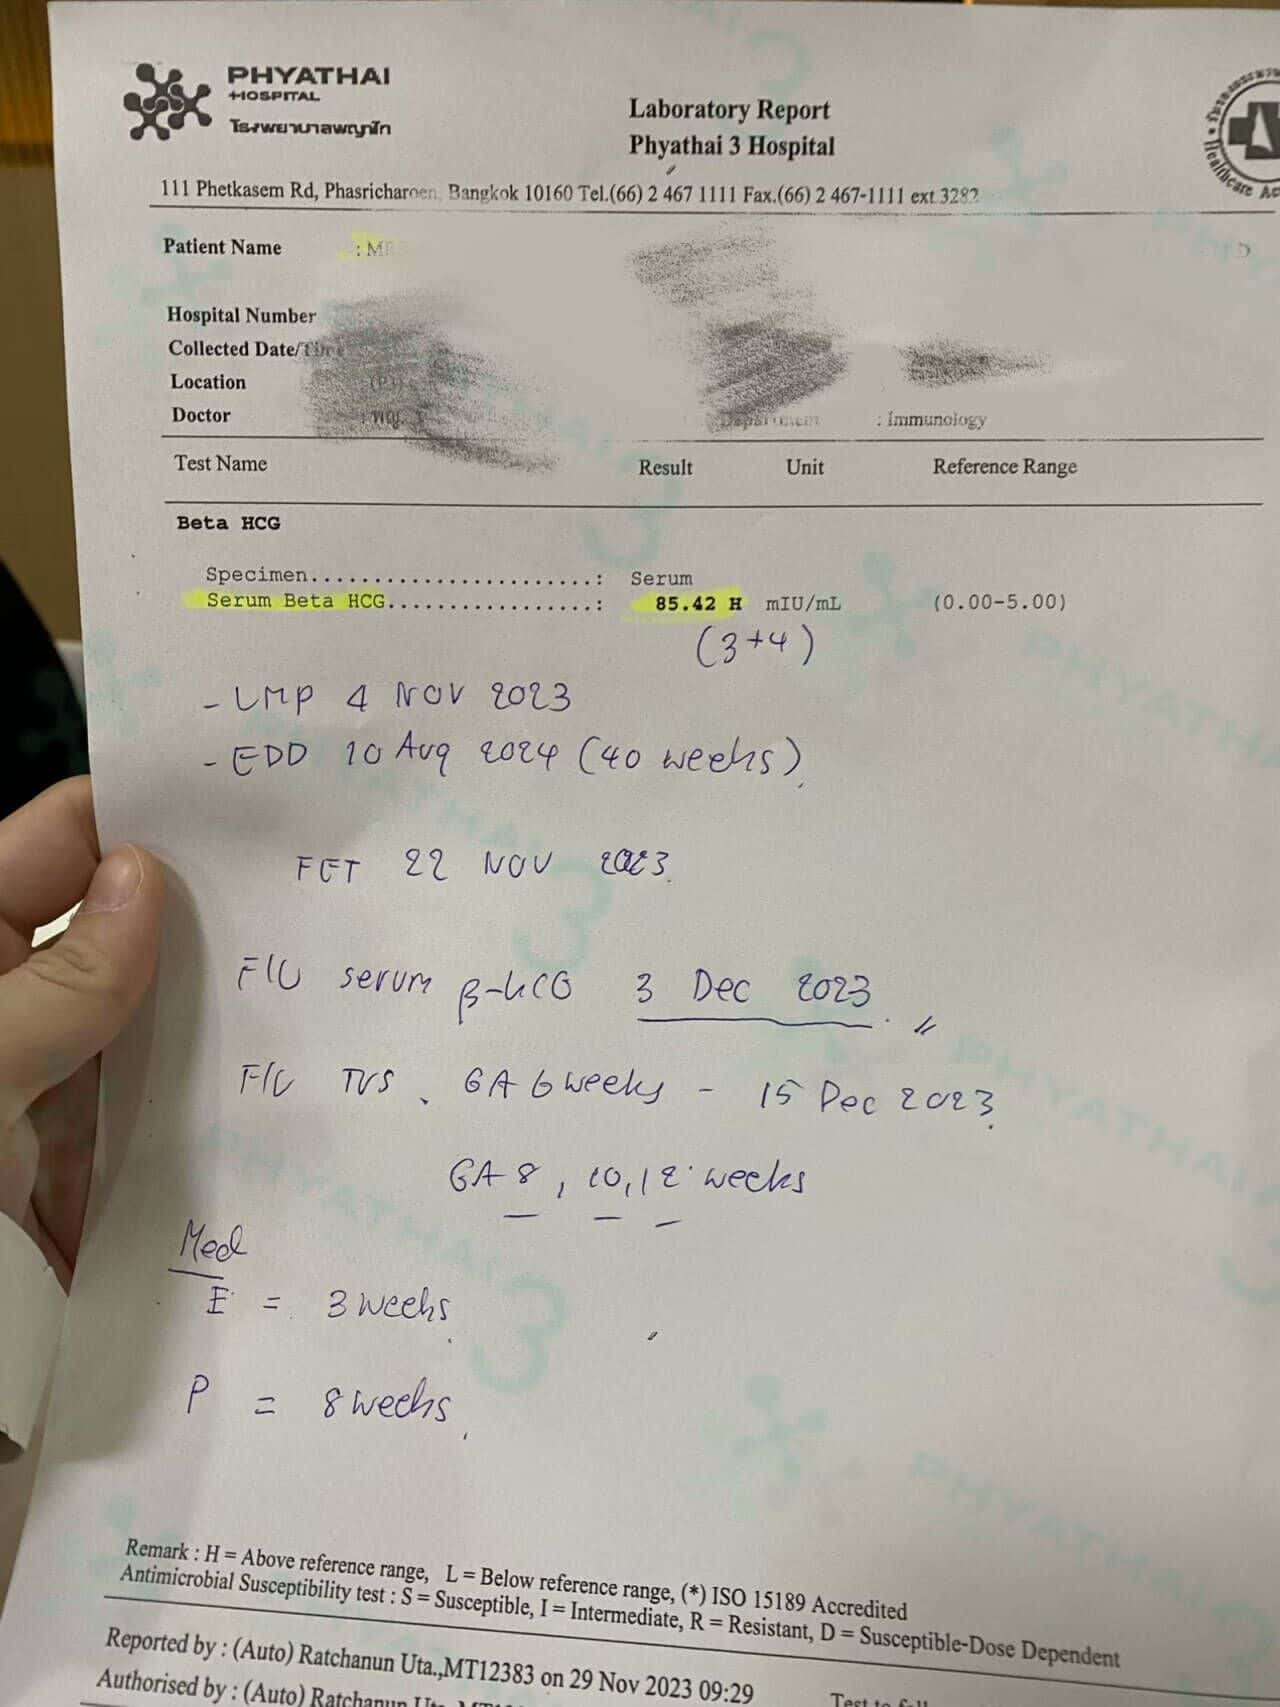 PHYATHAI
HOSPITAL
โรงพยาบาลพญาไท
Laboratory Report
Phyathai 3 Hospital
111 Phetkasem Rd, Phasricharoen, Bangkok 10160 Tel.(66) 2 467 1111 Fax.(66) 2 467-1111 ext.3282
Patient Name
Hospital Number
Collected Date/Time
Location
Doctor
Department : Immunology
Test Name Result Unit Reference Range
Beta HCG
Specimen.......................: Serum
Serum Beta HCG.................: 85.42 H mIU/mL (0.00-5.00)
(3+4)
- LMP 4 NOV 2023
- EDD 10 Aug 2024 (40 weeks)
FET 22 NOV 2023
F/U serum β-hCG 3 Dec 2023
F/U TVS. GA 6 weeks - 15 Dec 2023
GA 8, 10, 12 weeks
Med
E = 3 weeks
P = 8 weeks
Remark : H = Above reference range, L = Below reference range, (*) ISO 15189 Accredited
Antimicrobial Susceptibility test : S = Susceptible, I = Intermediate, R = Resistant, D = Susceptible-Dose Dependent
Reported by : (Auto) Ratchanun Uta.,MT12383 on 29 Nov 2023 09:29
Authorised by : (Auto) Ratchanun